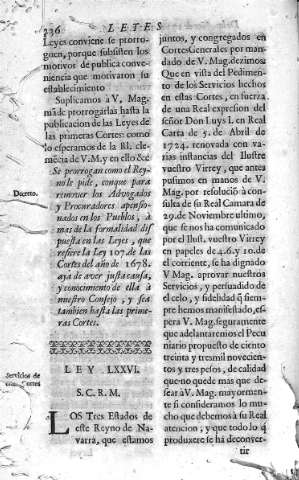 236
LETES
Leyes conviene se prorro-
guen, porque subsisten los
motivos de publica conve-
niencia que motivaron su
establecimiento
Suplicamos à V. Mag.
mãde prorrogarlas hasta la
publicacion de las Leyes de
las primeras Cortes: como
lo esperamos de la Rl. cle-
mẽcia de V.M. y en ello &c
Decreto.
Se prorrogan como el Rey-
no le pide, conque para
remover los Advogados
y Procuradores apensio-
nados en los Pueblos, à
mas de la formalidad dis-
puesta en las Leyes, que
refiere la Ley 107. de las
Cortes del año de 1678.
aya de aver justa causa,
y conocimiento de ella à
nuestro Consejo, y sea
tambien hasta las prime-
ras Cortes.
LEY LXXVI.
Servicios de
Cortes
S. C. R. M.
LOS Tres Estados de
este Reyno de Na-
varra, que estamos
juntos, y congregados en
Cortes Generales por man-
dado de V. Mag. dezimos:
Que en vista del Pedimento
de los Servicios hechos
en estas Cortes, en fuerza
de una Real expresion del
señor Don Luys I. en Real
Carta de 5. de Abril de
1724. renovada con va-
rias instancias del Ilustre
vuestro Virrey, que antes
pusimos en manos de V.
Mag. por resoluciõ à con-
sulta de su Real Camara de
29. de Noviembre ultimo,
que se nos ha comunicado
por el Ilust. vuestro Virrey
en papeles de 4. 6. y 10. de
el corriente, se ha dignado
V Mag. aprovar nuestros
Servicios, y persuadido de
el celo, y fidelidad q̃ siem-
pre hemos manifestado, es-
pera V. Mag. seguramente
que adelantaremos el Pecu-
niario propuesto de ciento
treinta y tresmil novecien-
tos y tres pesos, de calidad
que no quede mas que de-
sear à V. Mag. mayormen-
te si consideramos lo mu-
cho que debemos à su Real
atencion; y que todo lo q̃
produxere se ha de conver-
tir